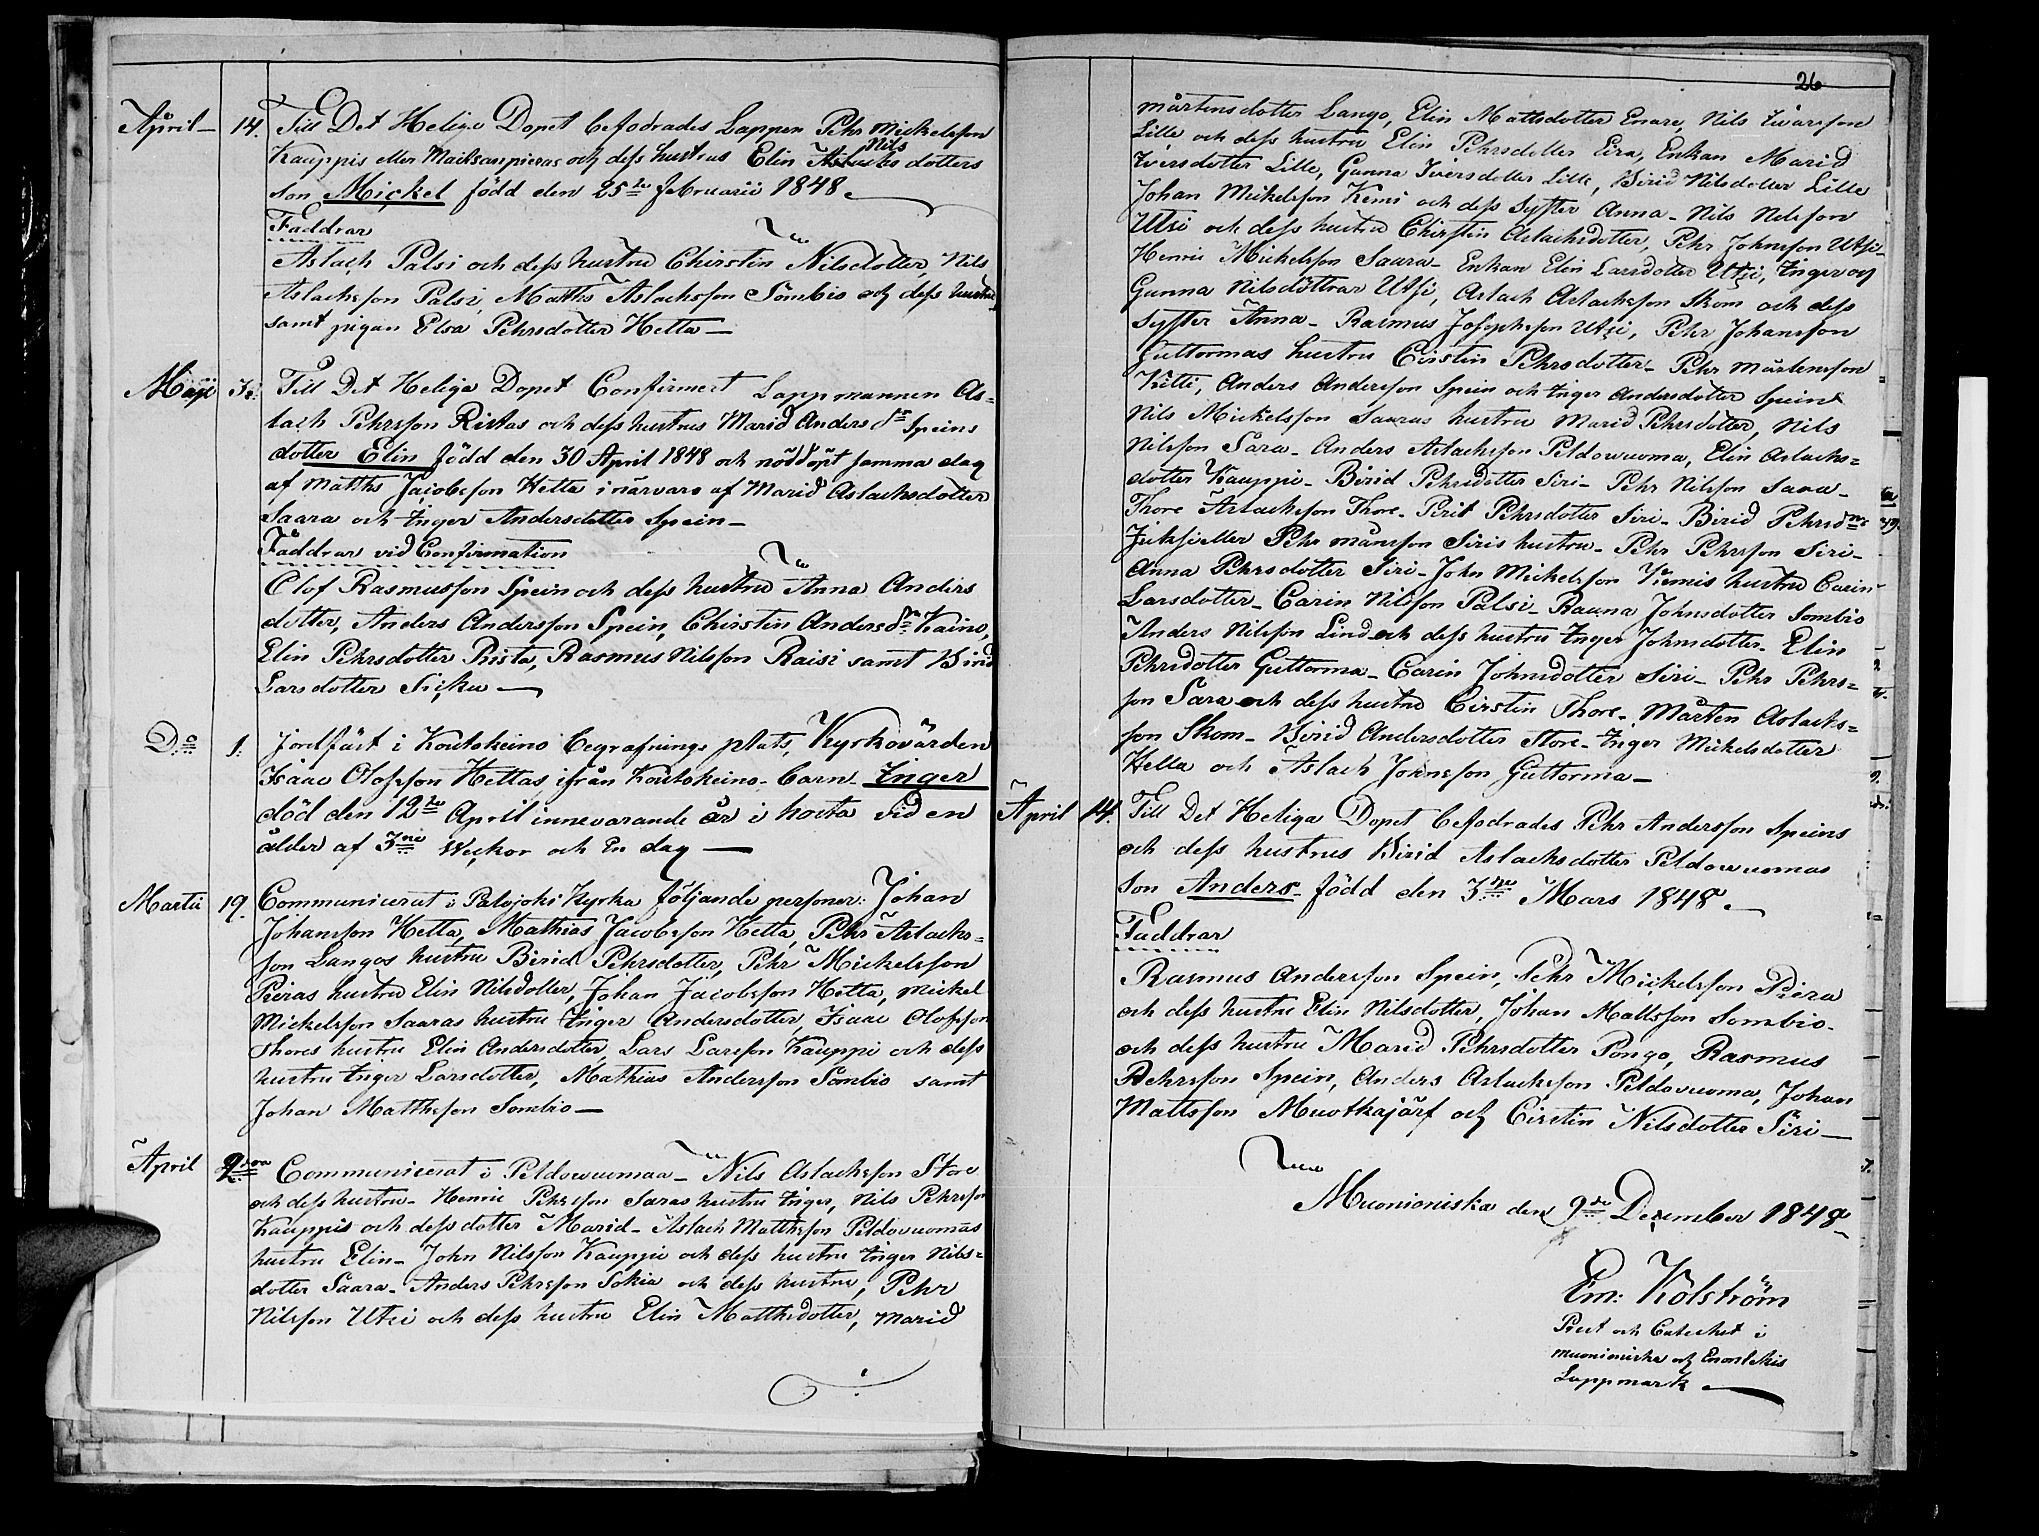 April 14. Till Det Helige Dopet befodrades Lappen Pehr Mickelsson
Nils
Kauppis eller Maitsanpieras och dess hustrus Elin Aslacks dotters
Son Mickel född den 25te februarii 1848
Faddrar
Aslach Palsi och dess hustru Chirstin Nilsdotter, Nils
Aslacksson Palsi, Matths Aslacksson Sombio och dess hustru
samt pigan Elsa Pehrsdotter Hetta
Maji Till Det Helige Dopet Confirmert Lappmannen As=
lach Pehrsson Ristas och dess hustrus Marid Anders dr Speins
dotter Elin född den 30 April 1848 och nöddöpt samma dag
af Matths Jacobsson Hetta i närvaro af Marid Aslachsdotter
Saara och Inger Andersdotter Spein
Faddrar vid Confirmation
Olof Rasmusson Spein och dess hustru Anna Anders
dotter, Anders Andersson Spein, Chirstin Anders dr Kaino,
Elin Pehrsdotter Rista, Rasmus Nilsson Raisi samt Birid
Larsdotter
Do 1. Jordfäst i Koutokeino begrafnings plats, Kyrkovärden
Isaac Olofsson Hettas ifrån Koutokeino barn Inger
död den 12te April innevarande år i hosta vid en
ålder af 3ne Weckor och En dag
Martii 19. Communicerat i Palojoki Kyrka följande personer: Johan
Johansson Hetta, Mathias Jacobsson Hetta, Pehr Aslacks=
son Langos hustru Birid Pehrsdotter, Pehr Mickelsson
Pieras hustru Elin Nilsdotter, Johan Jacobsson Hetta, Mickel
Mickelsson Saaras hustru Inger Andersdotter, Isaac Olofsson
Thores hustru Elin Andersdotter, Lars Larsson Kauppi och dess
hustru Inger Larsdotter, Mathias Andersson Sombio samt
Johan Matthsson Sombio
April 2dra Communicerat i Peldowuomaa Nils Aslacksson Store
och dess hustru Henric Pehrsson Saras hustru Inger, Nils Pehrsson
Kauppis och dess dotter Marid Aslach Matthsson Peldovuomas
hustru Elin John Nilsson Kauppi och dess hustru Inger Nils=
dotter Saara Anders Pehrsson Sokia och dess hustru, Pehr
Nilsson Utsi och dess hustru Elin Matthsdotter, Marid
26
Mårtensdotter Lango, Elin Mattsdotter Enare, Nils Ivarsson
Lille och dess hustru Elin Pehrsdotter Eira, Enkan Marid
Iversdotter Lille, Gunna Iversdotter Lille, Birid Nilsdotter Lille
Johan Mickelsson Kemi och dess Syster Anna Nils Nilsson
Utsi och dess hustru Chirstin Aslachsdotter, Pehr Johnsson Utsi
Henric Mickelsson Saara Enkan Elin Larsdotter Utsi, Inger och
Gunna Nilsdöttrar Utsi, Aslach Aslacksson Skom och dess
Syster Anna Rasmus Josephsson Utsi, Pehr Johansson
Guttormas hustru Cirstin Pehrsdotter Pehr Mårtensson
Kitti, Anders Andersson Spein och Inger Andersdotter Spein
Nils Mickelsson Saaras hustru Marid Pehrsdotter, Nils
Nilsson Sara Anders Aslacksson Peldowuoma, Elin Aslachs=
dotter Kauppi Birid Pehrsdotter Siri Pehr Nilsson Sara
Thore Aslacksson Thore Perit Pehrsdotter Siri Birid Pehrsd
Juksi eller Pehr Månsson Siris hustru Pehr Pehrsson Siri
Anna Pehrsdotter Siri John Mickelsson Kemis hustru Carin
Larsdotter Carin Nilsson Palsi Rauna Johnsdotter Sombio
Anders Nilsson Lind och dess hustru Inger Johnsdotter Elin
Pehrsdotter Guttorma Carin Johnsdotter Siri Pehr Pehrs=
son Sara och dess hustru Cirstin Thore Mårten Aslacks=
son Skom Birid Andersdotter Store Inger Mickelsdotter
Hetta och Aslach Johnsson Guttorma
April 14. Till Det Heliga Dopet befodrades Pehr Andersson Speins
och dess hustrus Birid Aslachsdotter Peldowuomas
Son Anders född den 3ne Mars 1848
Faddrar
Rasmus Andersson Spein, Pehr Mickelsson Piera
och dess hustru Elin Nilsdotter, Johan Mattsson Sombio
och dess hustru Marid Pehrsdotter Pongo, Rasmus
Pehrsson Spein, Anders Aslacksson Peldovuoma, Johan
Mattsson Muotkajärf och Cirstin Nilsdotter Siri
Muonioniska den 9de December 1848
Em: Kolström
Prest och Catechet i
Muonioniska och Enontekis
Lappmark